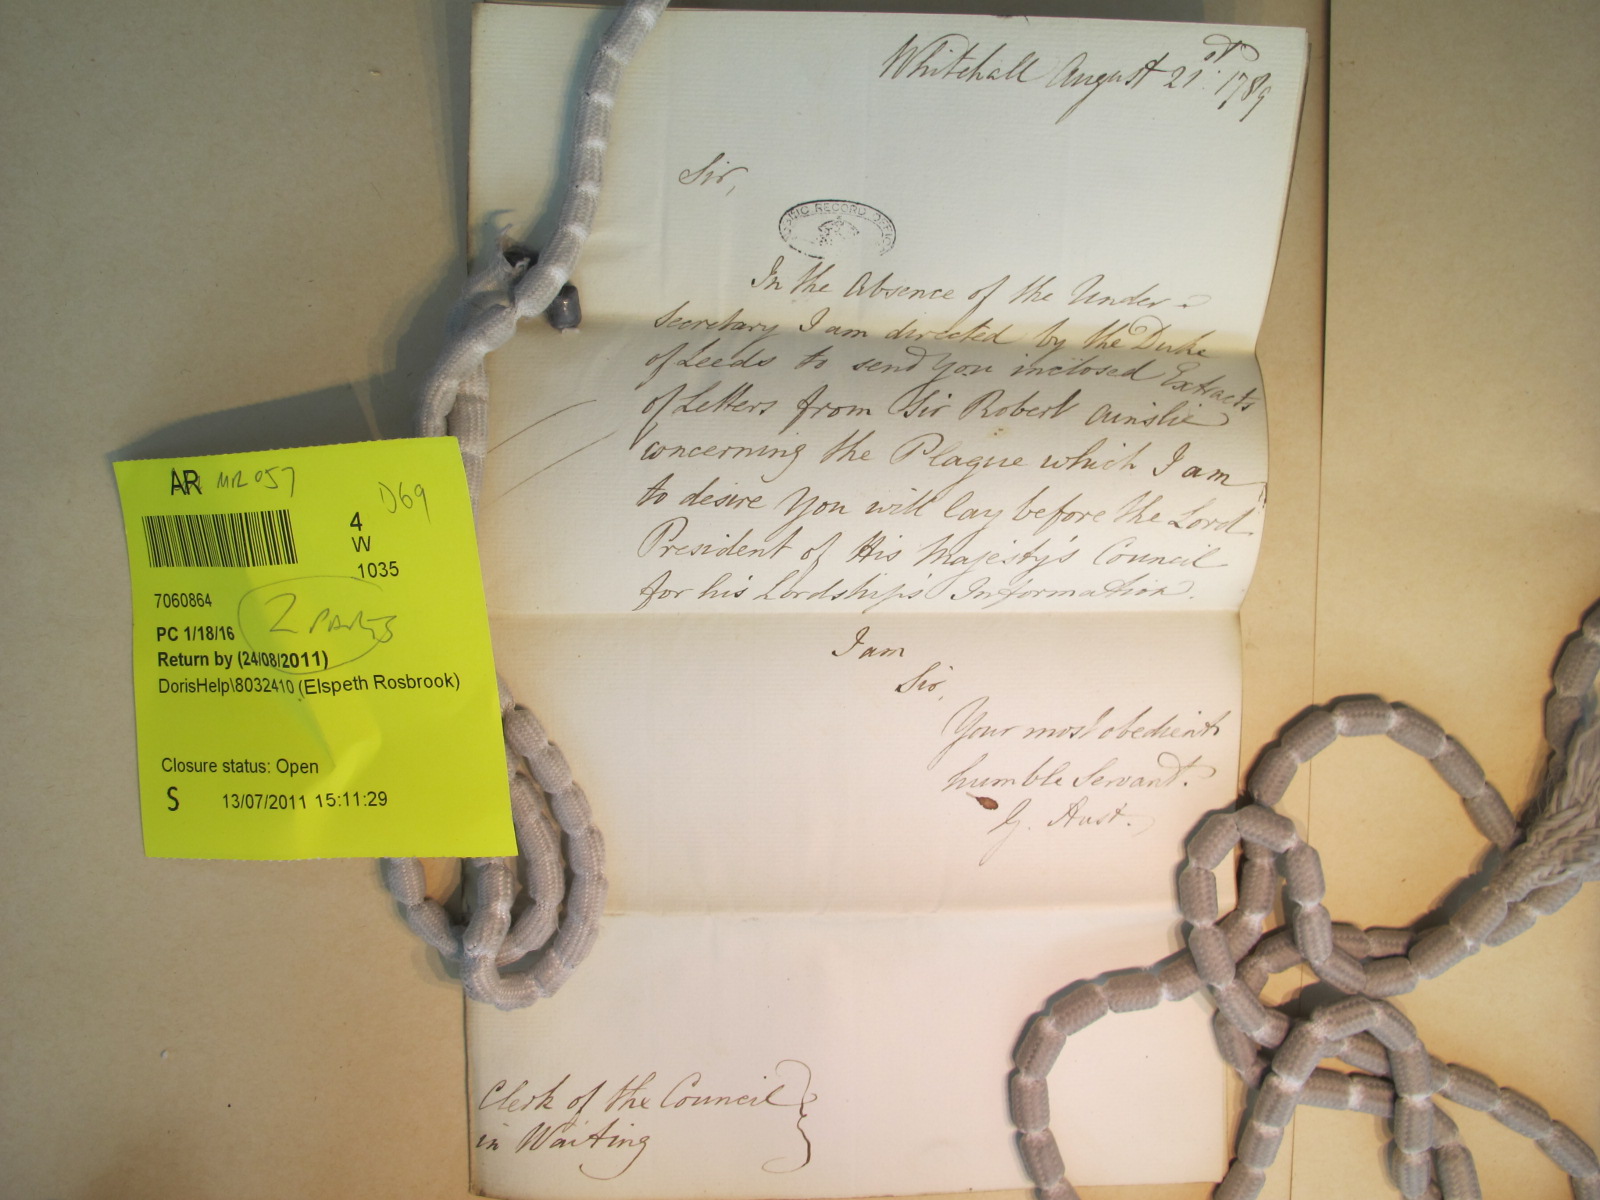 Whitehall August 21st. 1789
Sir,
PUBLIC RECORD OFFICE
In the Absence of the Under=
Secretary I am directed by the Duke
of Leeds to send You inclosed Extracts
of Letters from Sir Robert Ainslie
concerning the Plague which I am
to desire You will lay before the Lord
President of His Majesty's Council
for his Lordship's Information.
I am
Sir,
Your most obedient
humble Servant.
G. Aust.
Clerk of the Council
in Waiting
AR MR 057
D69
4
W
1035
7060864
2 PARTS
PC 1/18/16
Return by (24/08/2011)
DorisHelp\8032410 (Elspeth Rosbrook)
Closure status: Open
S 13/07/2011 15:11:29